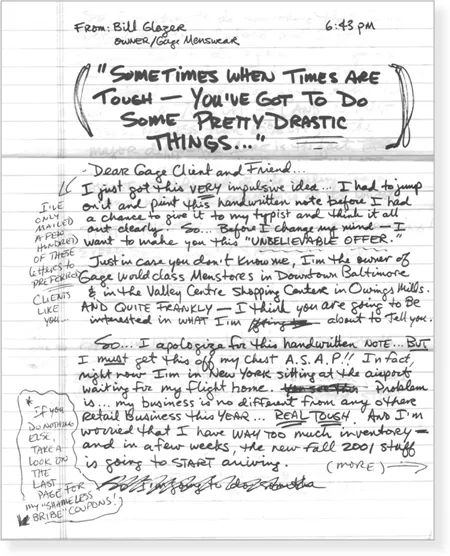 From: Bill Glazer
Owner/Gage Menswear
6:43 pm
"Sometimes When Times Are
Tough — You've Got To Do
Some Pretty Drastic
Things..."
Dear Gage Client and Friend...
I just got this VERY impulsive idea... I had to jump
on it and print this handwritten note before I had
a chance to give it to my typist and think it all
out clearly. So... Before I change my mind — I
want to make you this "UNBELIEVABLE OFFER."
Just in case you don't know me, I'm the owner of
Gage World class Menstores in Downtown Baltimore
& in the Valley Centre Shopping Center in Owings Mills.
AND QUITE FRANKLY — I think you are going to BE
interested in WHAT I'm about to Tell you.
So... I apologize for this handwritten NOTE... BUT
I must get this off my chest A.S.A.P!! In fact,
right now I'm in New York sitting at the airport
waiting for my flight home. Problem
is... my business is no different from any other
Retail Business this YEAR... REAL TOUGH. And I'm
worried that I have WAY TOO much inventory —
and in a few weeks, the new Fall 2001 stuff
is going to START arriving.
(MORE)
I've
only
mailed
a few
hundred
of these
letters to
preferred
clients
like
you...
*
If you
do nothing
else,
take a
look on
the
last
page for
my "shameless
bribe" coupons!